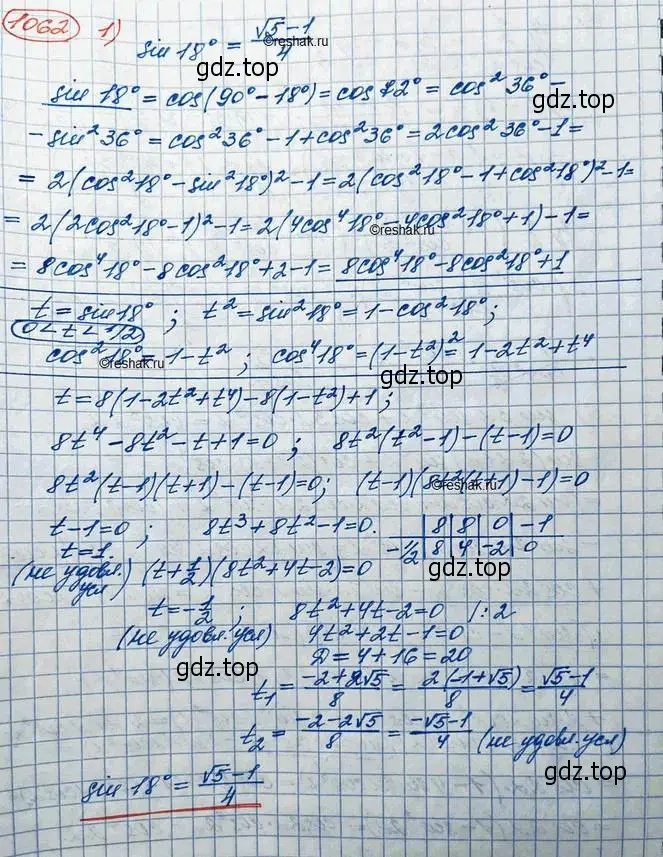 1062 1) sin 18° = (√5 − 1)/4
©reshak.ru
гдз.top
sin 18° = cos(90° − 18°) = cos 72° = cos² 36° −
− sin² 36° = cos² 36° − 1 + cos² 36° = 2cos² 36° − 1 =
гдз.top
= 2(cos² 18° − sin² 18°)² − 1 = 2(cos² 18° − 1 + cos² 18°)² − 1 =
= 2(2cos² 18° − 1)² − 1 = 2(4cos⁴ 18° − 4cos² 18° + 1) − 1 =
©reshak.ru
гдз.top
= 8cos⁴ 18° − 8cos² 18° + 2 − 1 = 8cos⁴ 18° − 8cos² 18° + 1
t = sin 18° ; t² = sin² 18° = 1 − cos² 18° ;
0 < t < 1/2
cos² 18° = 1 − t² ; cos⁴ 18° = (1 − t²)² = 1 − 2t² + t⁴
©reshak.ru
гдз.top
t = 8(1 − 2t² + t⁴) − 8(1 − t²) + 1 ;
8t⁴ − 8t² − t + 1 = 0 ; 8t²(t² − 1) − (t − 1) = 0
8t²(t − 1)(t + 1) − (t − 1) = 0; (t − 1)(8t²(t + 1) − 1) = 0
гдз.top
t − 1 = 0 ; 8t³ + 8t² − 1 = 0. | 8 | 8 | 0 | −1
t = 1. −1/2 | 8 | 4 | −2 | 0
(не удовл. усл) (t + 1/2)(8t² + 4t − 2) = 0
гдз.top
t = −1/2 ; 8t² + 4t − 2 = 0 /: 2
(не удовл. усл) 4t² + 2t − 1 = 0
D = 4 + 16 = 20
гдз.top
t₁ = (−2 + 2√5)/8 = 2(−1 + √5)/8 = (√5 − 1)/4
t₂ = (−2 − 2√5)/8 = (−√5 − 1)/4 (не удовл. усл)
гдз.top
sin 18° = (√5 − 1)/4
гдз.top